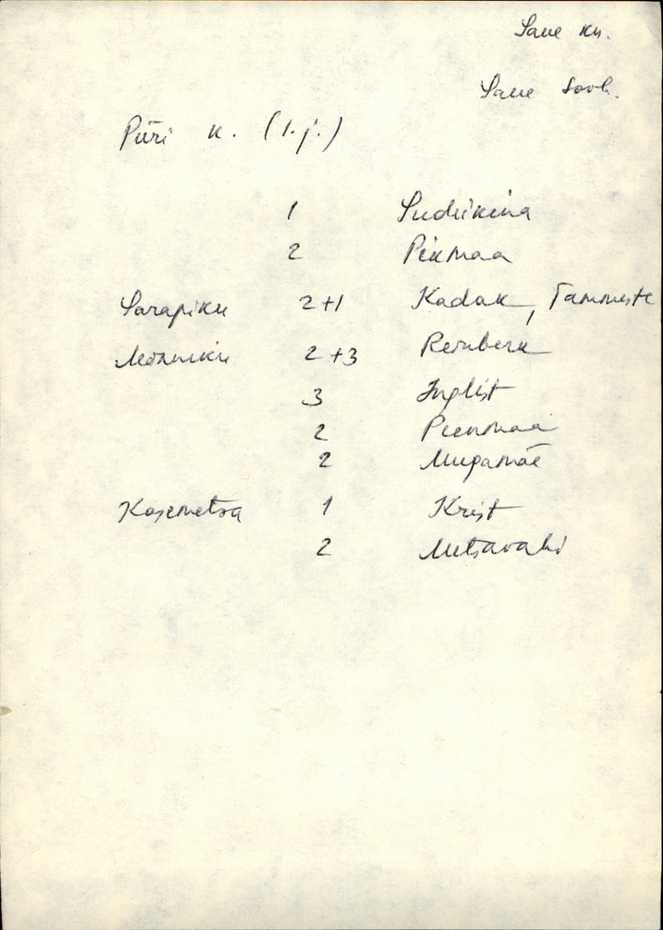 Saue kn.
Saue sovh.
Püri k. (1.j.)
1 Sudnikina
2 Pikmaa
Sarapiku 2+1 Kadak, Tammiste
2+3 Reinberk
3 Inglist
2 Pienmaa
2 Mugamäe
Kasemetsa 1 Krist
2 Metsavahi